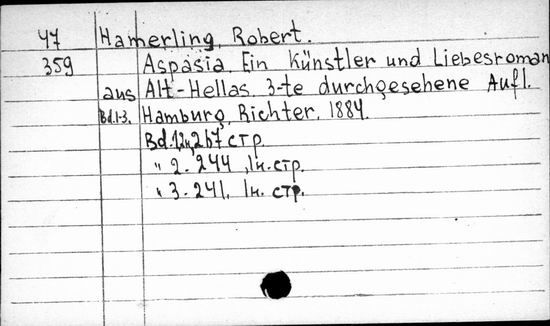 47 Hamerling, Robert.
359 Aspasia. Ein Künstler und Liebesroman
aus Alt-Hellas. 3-te durchgesehene Aufl.
Bd.1-3. Hamburg, Richter, 1884.
267 стр.
" 2. 244, 1н. стр.
" 3. 241, 1н. стр.